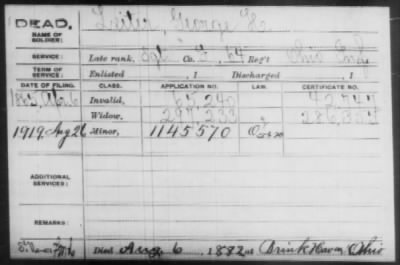 DEAD.
NAME OF SOLDIER: Leiter, George L
SERVICE: Late rank, Sgt Co. F, 64 Reg't Ohio Inf
TERM OF SERVICE: Enlisted , 1 Discharged , 1
DATE OF FILING. CLASS. APPLICATION NO. LAW. CERTIFICATE NO.
Invalid, 65,240 42,747
Widow, 297,233 286,355
1919 Aug 26 Minor, 1145570
ADDITIONAL SERVICES:
REMARKS:
Died Aug. 6, 1882 at Brink Haven, Ohio